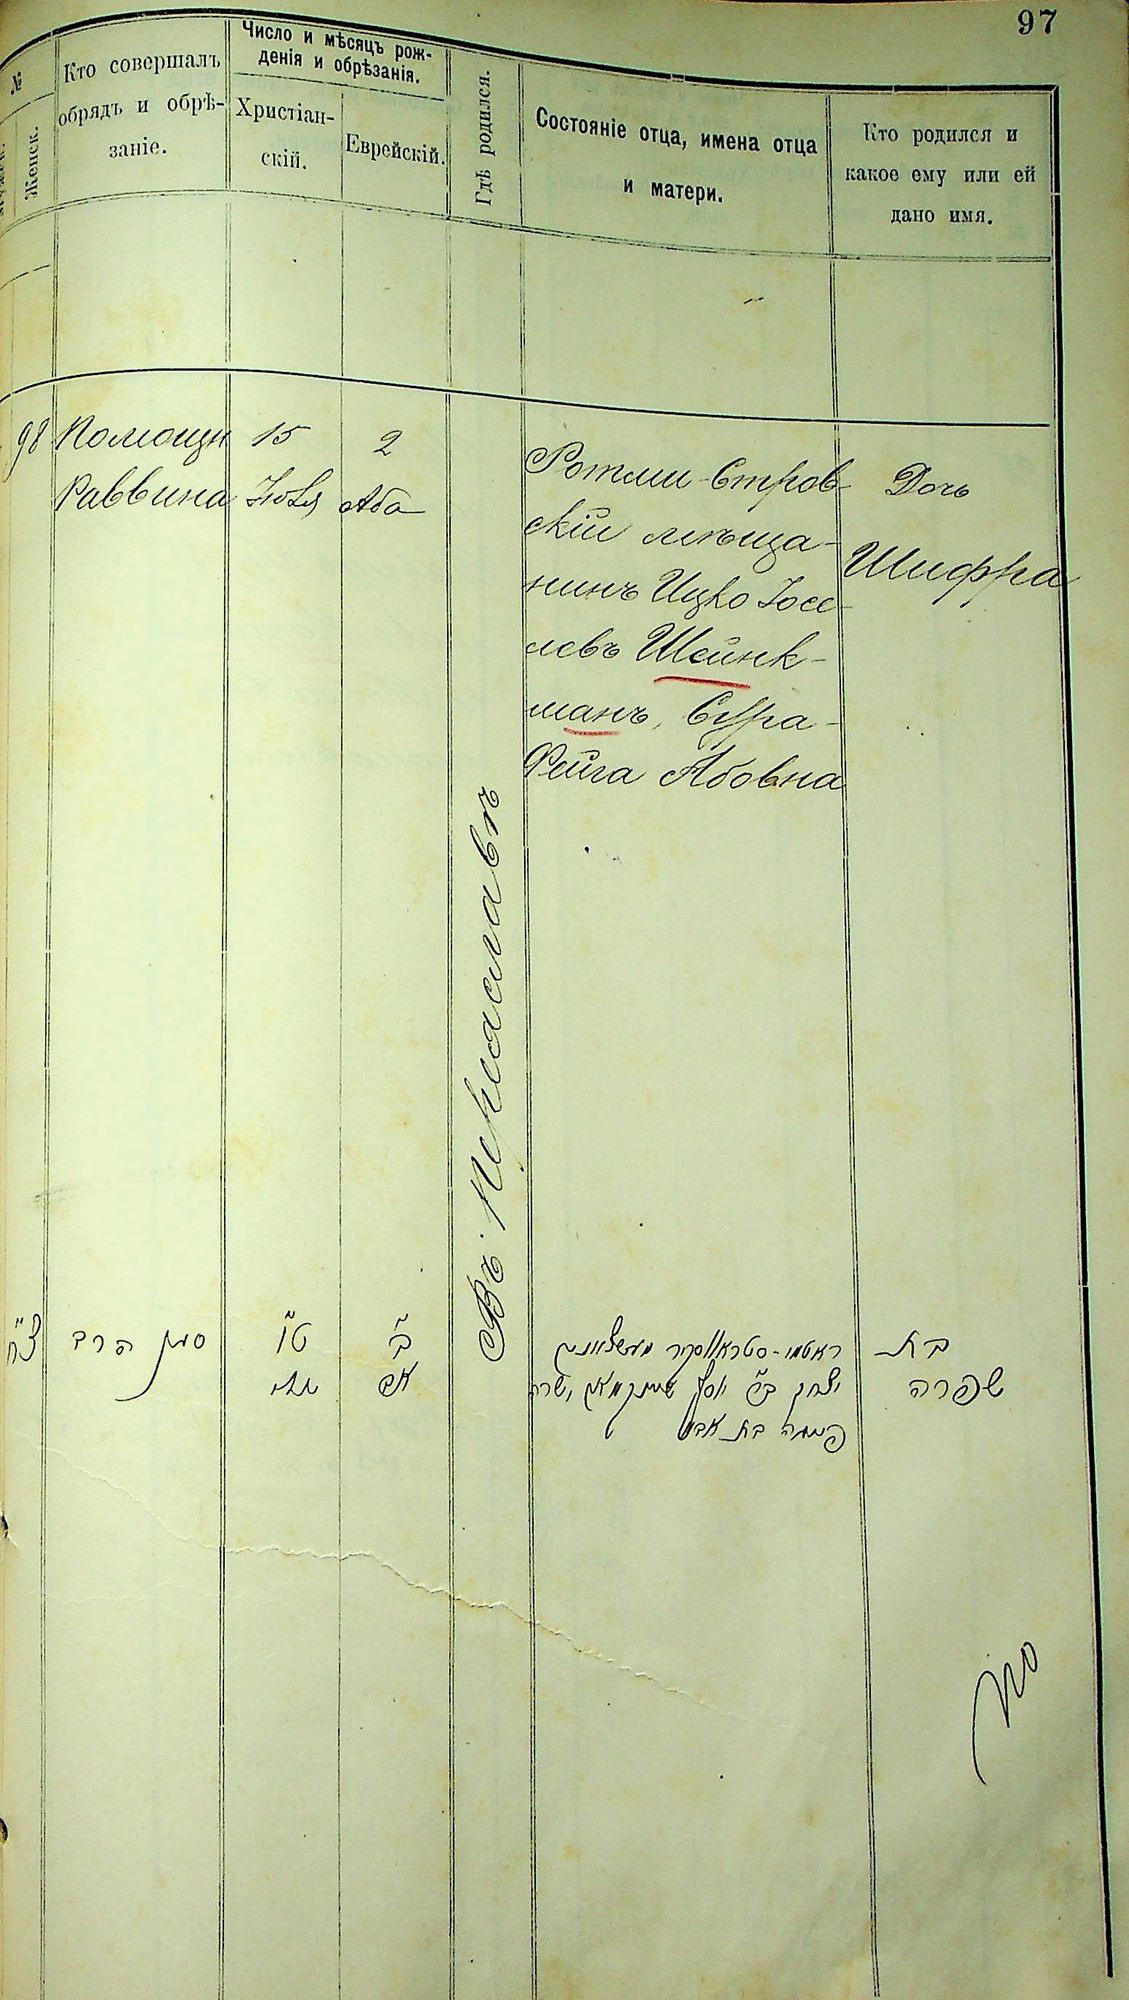 97
№
Женск.
Кто совершалъ
обрядъ и обрѣ-
заніе.
Число и мѣсяцъ рож-
денія и обрѣзанія.
Христіан-
скій.
Еврейскій.
Гдѣ родился.
Состояніе отца, имена отца
и матери.
Кто родился и
какое ему или ей
дано имя.
98
Помощн
Раввина
15
Юля
2
Аба
Въ Переяславѣ
Ротми-Стров-
скій мѣща-
нинъ Ицко Іосе-
левъ Шейнк-
манъ, Сура-
Фейга Абовна
Дочь
Шифра
צ"ח
סגן הרב
ט"ו
יולי
ב"
אב
ראטמי-סטראווסקיר
יצחק ב"ר יוסף שיינקמאן, שרה
פייגה בת אבא
בת
שפרה